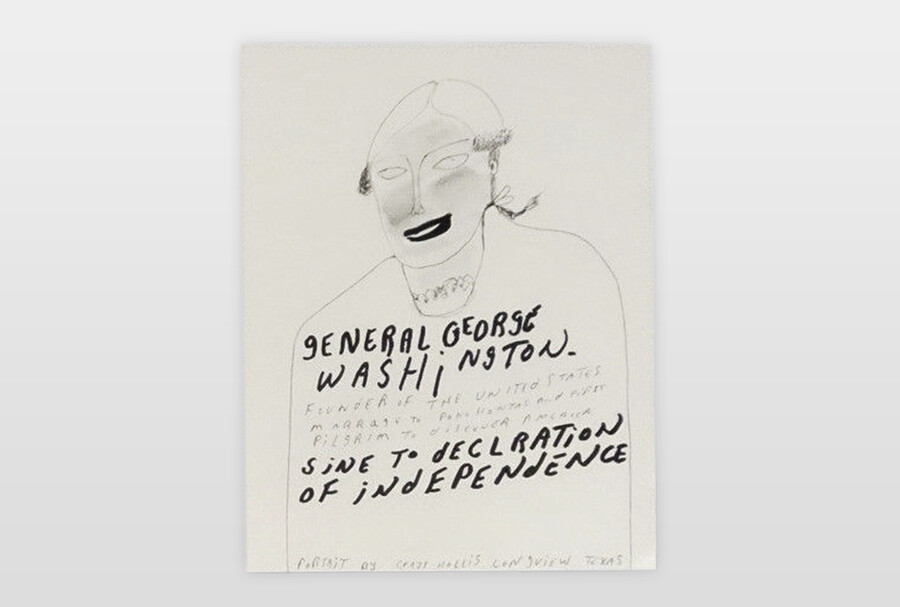 gENERAL GEORgE
WASHiNgTON-
FOUNDER OF THE UNiTEd STATES
MARRAgE To POKOHONTAS ANd FiRST
PiLGRiM To diSCOVER AMERiCA
SiNE To dECLRATiON
OF iNdEPENdENCE
PORTRAiT BY HOLLiS LONgViEW TEXAS